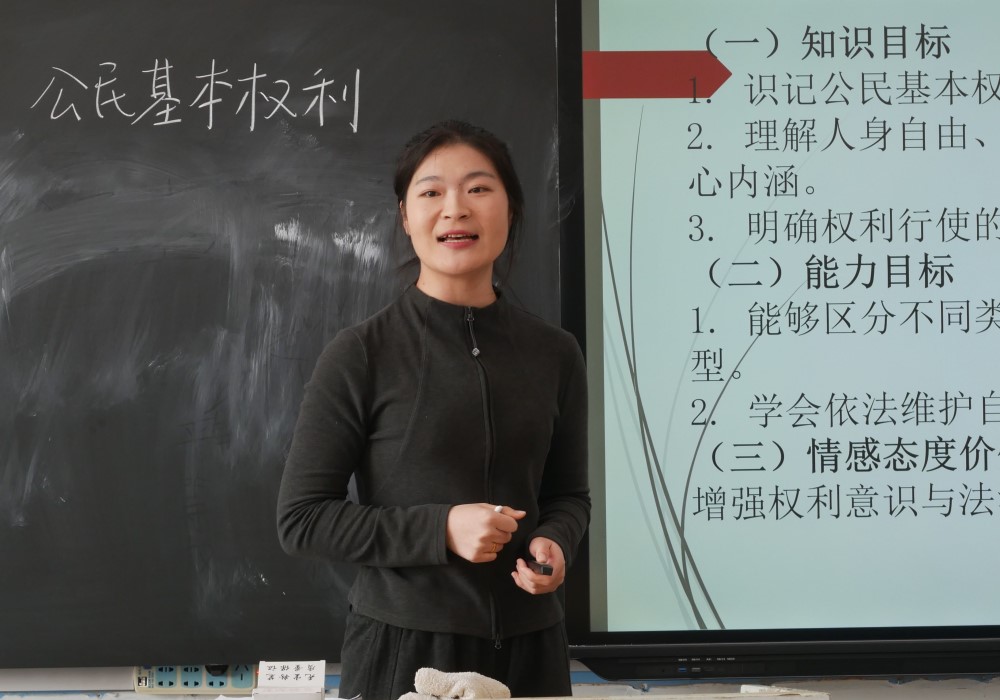 公民基本权利
（一）知识目标
1. 识记公民基本权
2. 理解人身自由、
心内涵。
3. 明确权利行使的
（二）能力目标
1. 能够区分不同类
型。
2. 学会依法维护自
（三）情感态度价
增强权利意识与法